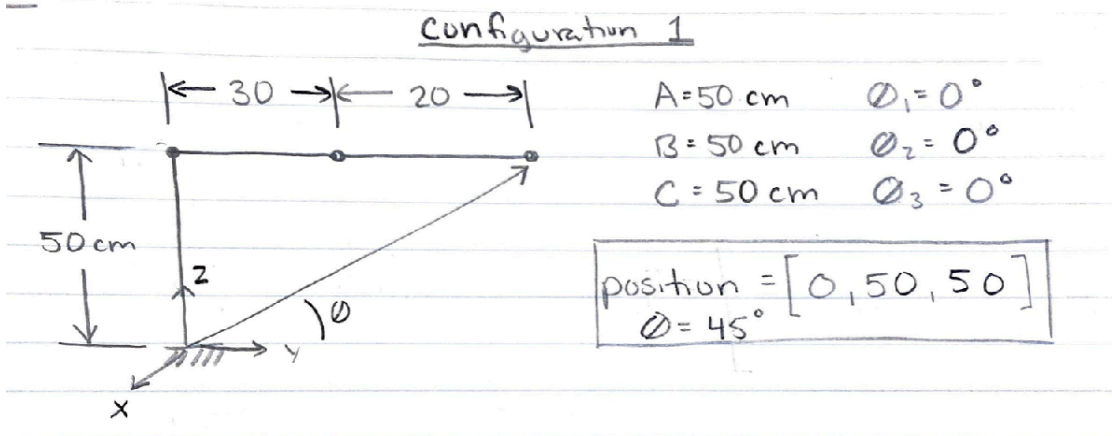 Configuration 1
30 20
A=50 cm Ø₁=0°
B=50 cm Ø₂=0°
C=50 cm Ø₃=0°
50 cm
Z
Ø
Y
X
position = [0, 50, 50]
Ø=45°